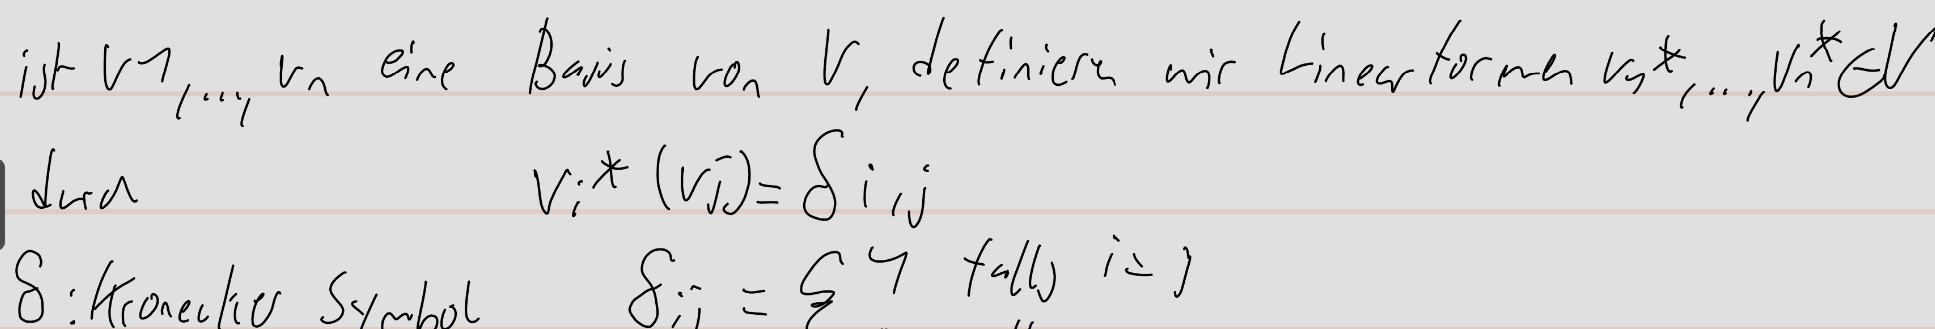 ist v1,..., vn eine Basis von V, definieren wir Linearformen v1*,...,vn* ∈ V
durch vi* (vj) = δ i,j
δ : Kronecker Symbol δij = { 1 falls i = j